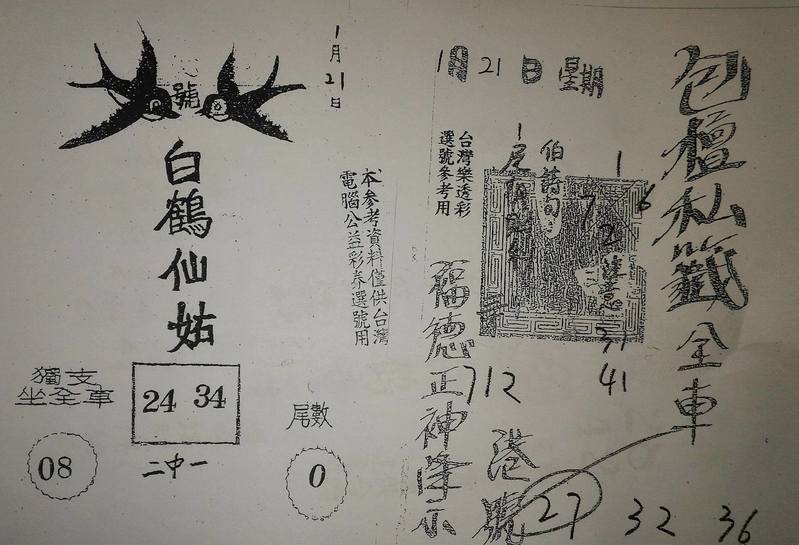 包檀私籤全車
1月21日 星期
1
6
7
2
31
41
台灣樂透彩
選號參考用
福德正神降示
712
港號
27 32 36
1月21日
本參考資料僅供台灣
電腦公益彩券選號用
號
白鶴仙姑
獨支
坐全車
08
24 34
二中一
尾數
0